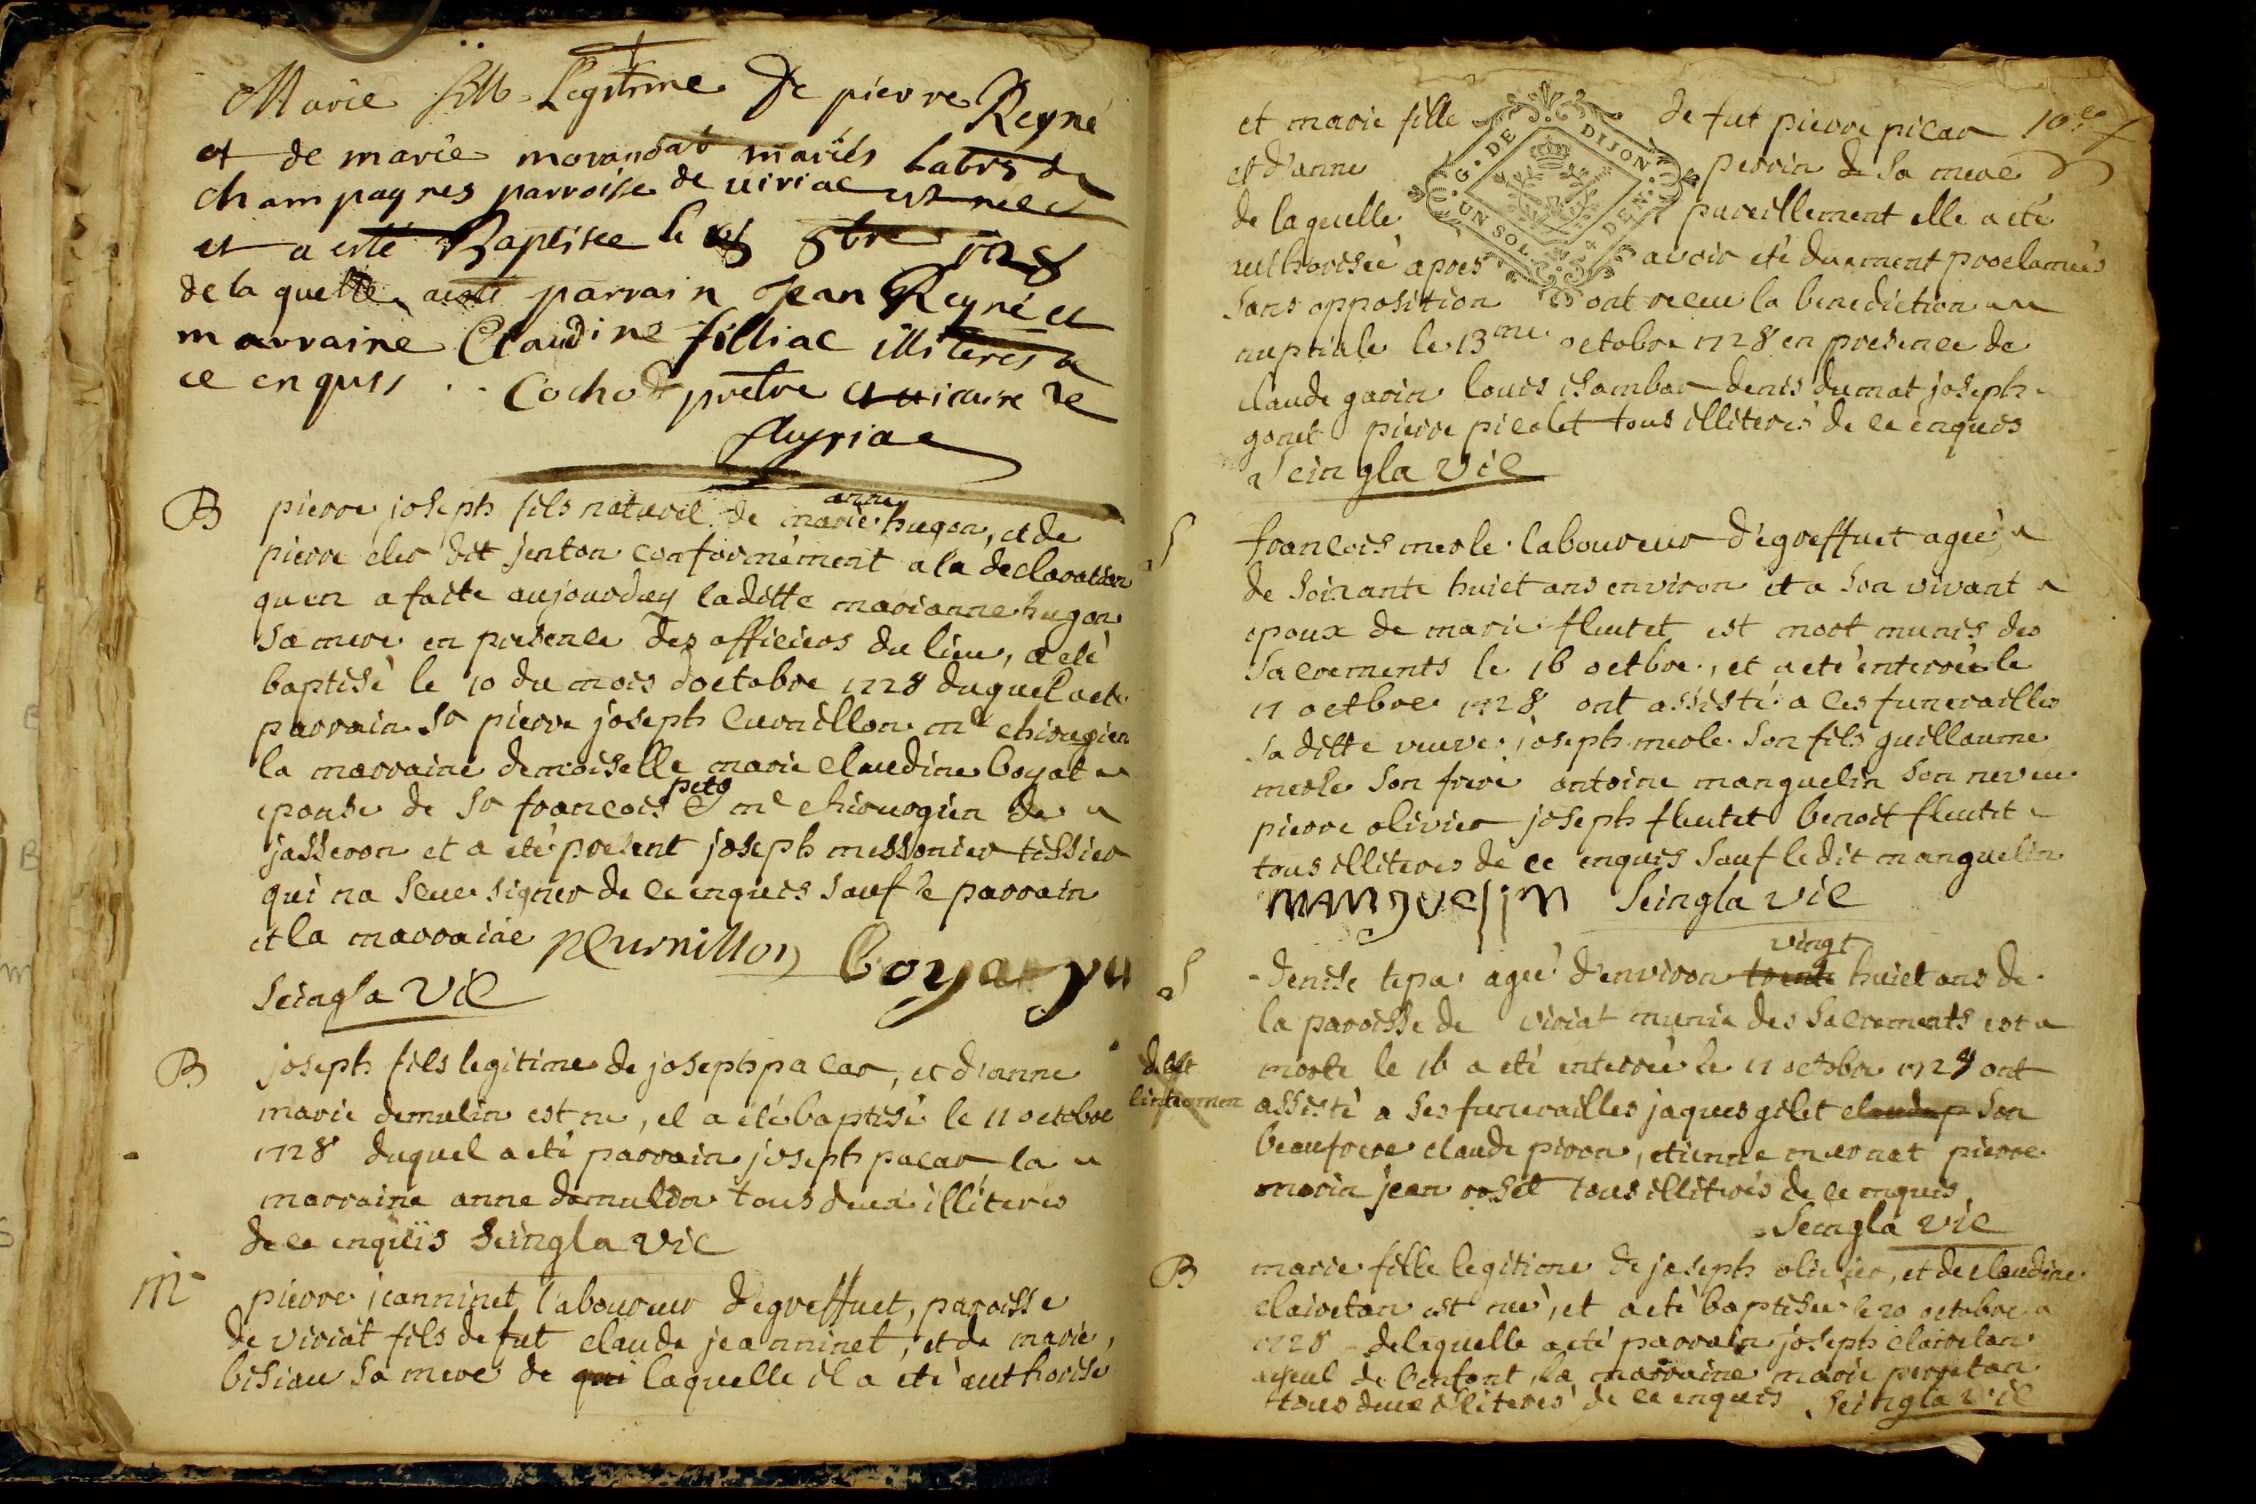 Marie fille Legitime de pierre Reyné
et de marie morandat mariés labrs de
champagnes parroisse de uiriac est née
et a esté Baptisée le 8bre 1728
de la quelle a esté parrain Jean Reyné et
marraine Claudine filliac illiterés de
ce enquis Cochod prêtre et uicaire de
fluyriac
B pierre joseph fils naturel de marie anne hugon, et de
pierre cler dit jenton conformément a la declaration
quen a faite aujourduy laditte marianne hugon
sa mere en presence des officiers du lieu, a eté
baptisé le 10 du mois doctobre 1728 duquel a eté
parrain Sr pierre joseph Curnillon me chirugien
la marraine demoiselle marie claudine boyat
epouse de Sr francois me chirurgien de
jasseron et a eté present joseph messonier tissier
qui na sceue signer de ce enquis sauf le parrain
et la marraine PCurnillon boyat
Seingla vic
B joseph fils legitime de joseph pacar, et d'anne
marie demulin est ne, et a eté baptisé le 11 octobre
1728 duquel a eté parrain joseph pacar la
marraine anne demulin tous deux illiterés
de ce enquis Seingla vic
M pierre jeanninet laboureur d'egreffuet, paroisse
de viriat fils de fut claude jeanninet, et de marie
bisiau sa mere de qui laquelle il a eté authorisé
et marie fille de fut pierre picar 10
et d'anne perrin de sa mere
de laquelle pareillement elle a eté
authorisée après avoir eté duement proclamés
sans opposition ont receu la benediction
nuptiale le 13me octobre 1728 en presence de
claude garin louis chambar denis dumat joseph
gonet pierre picolet tous illiterés de ce enquis
Seingla vic
G. DE DIJON
UN SOL 4 DEN.
S francois merle laboureur d'egreffuet agée
de soixante huict ans environ et a son vivant
epoux de marie fleutet est mort munis des
Sacrements le 16 octbre, et a eté enterrée le
17 octbre 1728 ont assisté a ces funerailles
sa ditte veuve joseph merle son fils guillaume
merle son frere antoine manguelin son neveu
pierre olivier joseph fleutet benoit fleutet
tous illiterés de ce enquis sauf le dit manguelin
manguelin Seingla vic
S denise tepa agée d'environ trente vingt huict ans de
la paroisse de viriat munie des Sacrements est
morte le 16 a eté enterrée le 17 octobre 1728 ont
assisté a ses funerailles jaques gilet claude p son
beaufrere claude piron, etienne mernat pierre
morin jean roset tous illiterés de ce enquis
Seingla vic
B marie fille legitime de joseph olivier, et de claudine
clairetan est née, et a eté baptisée le 20 octobre
1728 de laquelle a eté parrain joseph clairetan
ayeul de l'enfant, la marraine marie perretan
tous deux illiterés de ce enquis Seingla vic